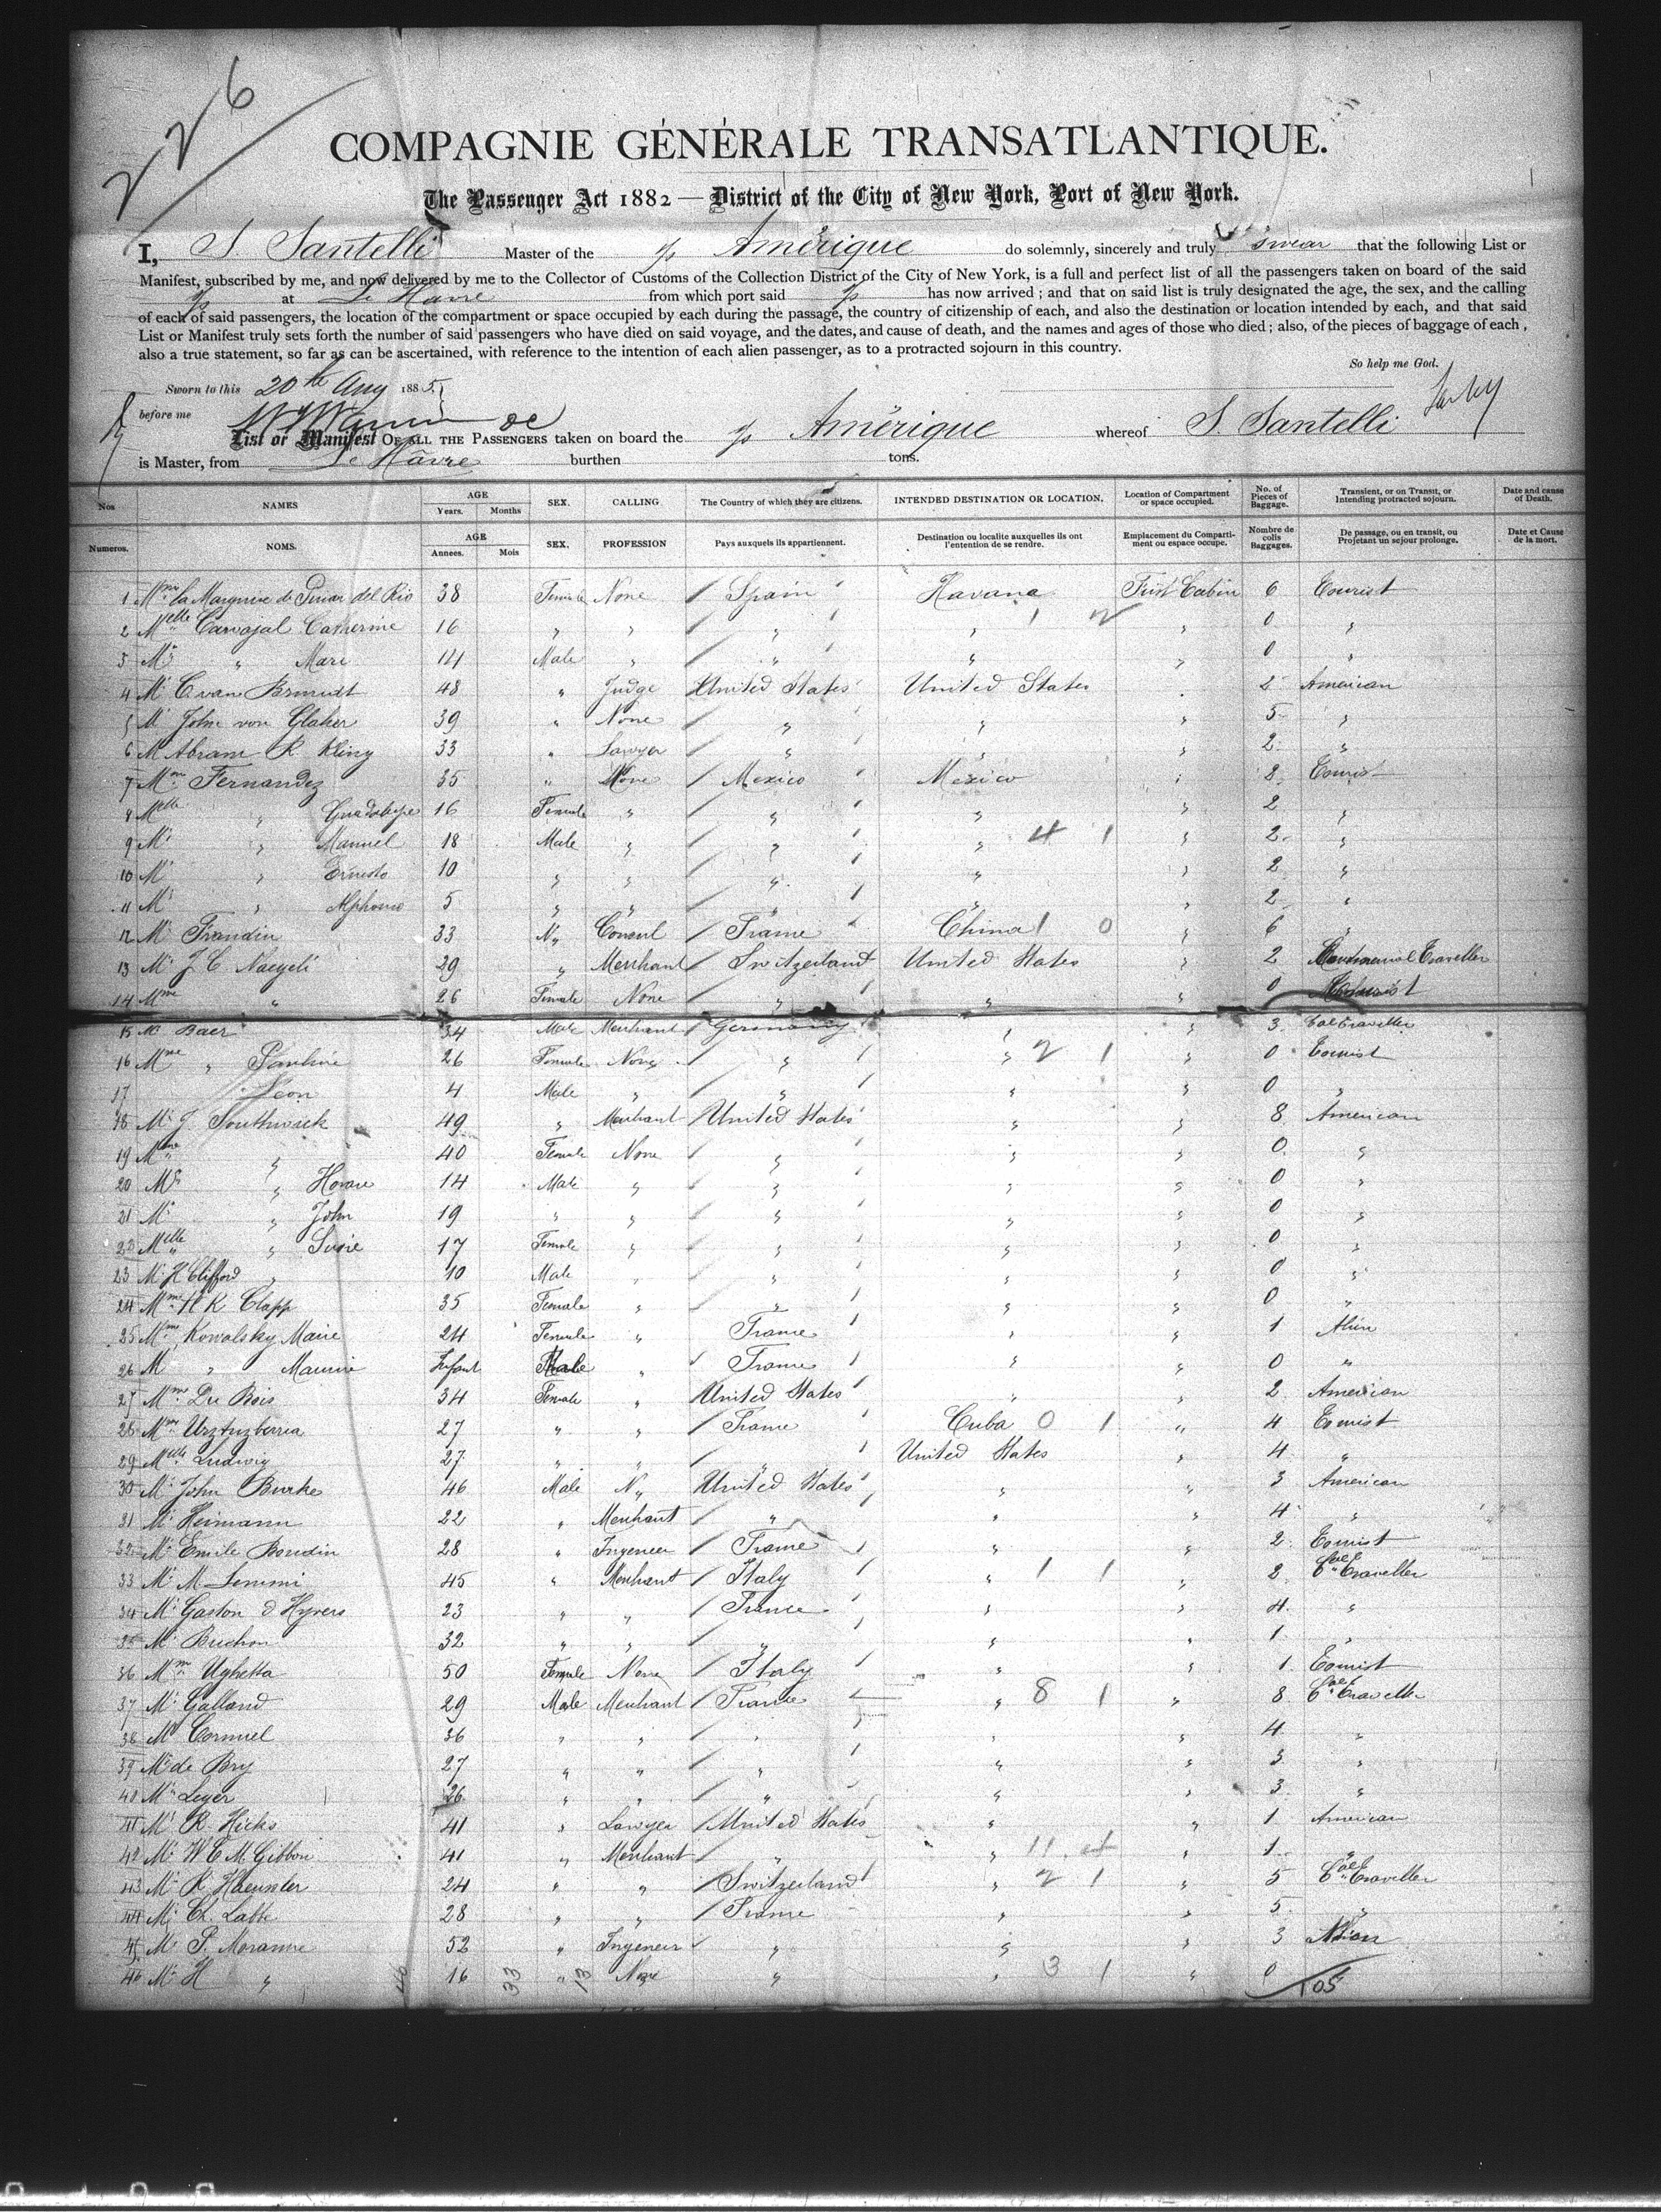 226
COMPAGNIE GÉNÉRALE TRANSATLANTIQUE.
The Passenger Act 1882 — District of the City of New York, Port of New York.
I, S. Santelli Master of the s/s Amérique do solemnly, sincerely and truly swear that the following List or
Manifest, subscribed by me, and now delivered by me to the Collector of Customs of the Collection District of the City of New York, is a full and perfect list of all the passengers taken on board of the said
s/s at Le Havre from which port said s/s has now arrived; and that on said list is truly designated the age, the sex, and the calling
of each of said passengers, the location of the compartment or space occupied by each during the passage, the country of citizenship of each, and also the destination or location intended by each, and that said
List or Manifest truly sets forth the number of said passengers who have died on said voyage, and the dates, and cause of death, and the names and ages of those who died; also, of the pieces of baggage of each,
also a true statement, so far as can be ascertained, with reference to the intention of each alien passenger, as to a protracted sojourn in this country.
So help me God.
Sworn to this 20th Aug 1885
before me
List or Manifest OF ALL THE PASSENGERS taken on board the s/s Amérique whereof S. Santelli
is Master, from Le Havre burthen tons.
Nos NAMES AGE Years. Months SEX. CALLING The Country of which they are citizens. INTENDED DESTINATION OR LOCATION. Location of Compartment or space occupied. No. of Pieces of Baggage. Transient, or on Transit, or Intending protracted sojourn. Date and cause of Death.
Numeros. NOMS. AGE Annees. Mois SEX. PROFESSION Pays auxquels ils appartiennent. Destination ou localite auxquelles ils ont l'entention de se rendre. Emplacement du Compartiment ou espace occupe. Nombre de colis Baggages. De passage, ou en transit, ou Projetant un sejour prolonge. Date et Cause de la mort.
1 Mme la Marquise de Pinar del Rio 38 Female None Spain Havana First Cabin 6 Tourist
2 Melle Carvajal Catherine 16 " " " " 1 2 " 0 "
3 Mr " Marc 14 Male " " " " 0 "
4 Mr C. van Brmudt 48 " Judge United States United States 2 American
5 Mr John von Glaher 39 " None " " " 5 "
6 M Abram R. Kling 33 " Lawyer " " " 2 "
7 Mme Fernandez 35 " None Mexico Mexico " 8 Tourist
8 Melle " Guadalupe 16 Female " " " " 2 "
9 Mr " Manuel 18 Male " " " 4 1 " 2 "
10 Mr " Ernesto 10 " " " " " 2 "
11 Mr " Alphonso 5 " " " " " 2 "
12 Mr Frandin 33 " Consul France China 1 0 " 6 "
13 Mr J. C. Naegeli 29 " Merchant Switzerland United States " 2 Traveller
14 Mme " 26 Female None " " " 0 Tourist
15 Mr Baer 34 Male Merchant Germany " " 3 Traveller
16 Mme " Pauline 26 Female None " " 2 1 " 0 Tourist
17 Leon 4 Male " " " " 0 "
18 Mr J. Southwick 49 " Merchant United States " " 8 American
19 Mme " 40 Female None " " " 0 "
20 Mr " Horace 14 Male " " " " 0 "
21 Mr " John 19 " " " " " 0 "
22 Melle " Susie 17 Female " " " " 0 "
23 Mr H Clifford " 10 Male " " " " 0 "
24 Mme H K Clapp 35 Female " " " " 0 "
25 Mme Kowalsky Marie 24 Female " France " " 1 Alien
26 M " Maurice Infant Male " France " " 0 "
27 Mme Du Bois 34 Female " United States " " 2 American
28 Mme 27 " " France Cuba 0 1 " 4 Tourist
29 Melle Ludwig 27 " " " United States " 4 "
30 Mr John Burke 46 Male N" United States " " 3 American
31 Mr Heimann 22 " Merchant " " " 4 "
32 Mr Emile Boudin 28 " Ingeneer France " " 2 Tourist
33 Mr M Lemmi 45 " Merchant Italy " 1 1 " 2 Cial Traveller
34 Mr Gaston d'Hyvers 23 " " France " " 4 "
35 Mr Buchon 32 " " " " " 1 "
36 Mme Ughetta 50 Female None Italy " " 1 Tourist
37 Mr Galland 29 Male Merchant France " 8 1 " 8 Cial Traveller
38 Mr Cornuel 36 " " " " " 4 "
39 Mr de Bry 27 " " " " " 3 "
40 Mr Leger 26 " " " " " 3 "
41 Mr R. Hicks 41 " Lawyer United States " " 1 American
42 Mr W C McGibbon 41 " Merchant " " 11 4 " 1 "
43 Mr R. Haeusler 24 " " Switzerland " 2 1 " 5 Cial Traveller
44 Mr Ch. Labbe 28 " " France " " 5 "
45 Mr P. Moranne 52 " Ingeneer " " " 3 Alien
46 Mr H " 16 " None " " 3 1 " 0
46 33 13 105